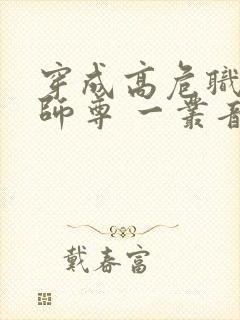 穿成高危職
師尊 一叢音
戴春富